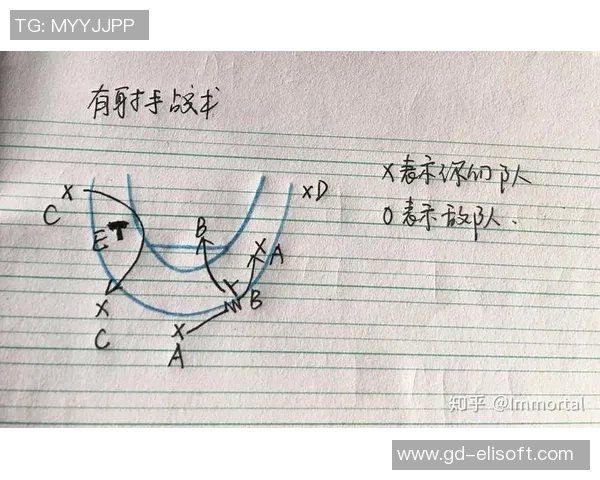 TG: MYYJJPP
有射手战术
X表示你们队
O表示敌队.
X
C
E
B
X
A
XD
B
X
C
X
A
知乎 @Immortal
www.gd-elisoft.com